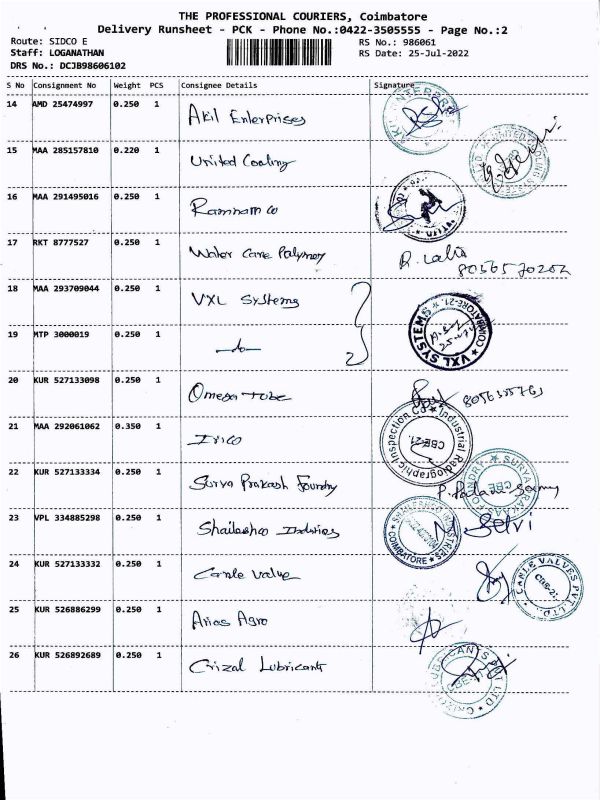 THE PROFESSIONAL COURIERS, Coimbatore
Delivery Runsheet - PCK - Phone No.:0422-3505555 - Page No.:2
Route: SIDCO E
Staff: LOGANATHAN
DRS No.: DCJB98606102
RS No.: 986061
RS Date: 25-Jul-2022
S No Consignment No Weight PCS Consignee Details Signature
14 AMD 25474997 0.250 1 Akil Enterprises
15 MAA 285157810 0.220 1 United Cooling
16 MAA 291495016 0.250 1
17 RKT 8777527 0.250 1 Water Care Polymer R. Lalis
18 MAA 293709044 0.250 1 VXL Systems
VXL SYSTEMS COIMBATORE-21
19 MTP 3000019 0.250 1 -do-
20 KUR 527133098 0.250 1 Omega tube
21 MAA 292061062 0.350 1 Irico
Industrial Radiographic Inspection Co CBE-21.
22 KUR 527133334 0.250 1 Surya Prakash Foundry
23 VPL 334885298 0.250 1 Shaileshco Industries N. Selvi
SHAILESHCO INDUSTRIES COIMBATORE
24 KUR 527133332 0.250 1 Canle Valve
CANLE VALVES PVT. LTD. CBE-21
25 KUR 526886299 0.250 1 Arias Agro
26 KUR 526892689 0.250 1 Crizal Lubricant